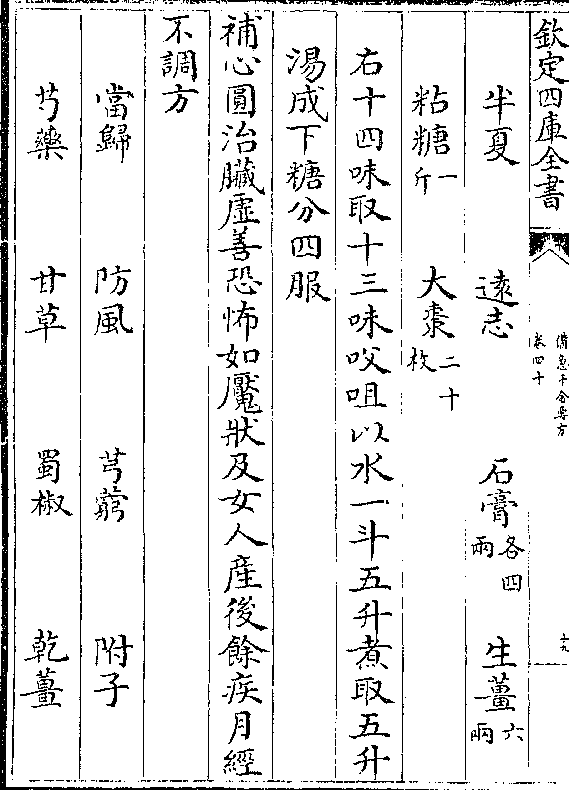 欽定四庫全書
備急千金要方
卷四十
半夏 遠志 石膏各四兩 生薑六兩
粘糖一斤 大棗二十枚
右十四味取十三味㕮咀以水一斗五升煮取五升
湯成下糖分四服
補心圓治臟虛善恐怖如魘狀及女人產後餘疾月經
不調方
當歸 防風 芎藭 附子
芍藥 甘草 蜀椒 乾薑